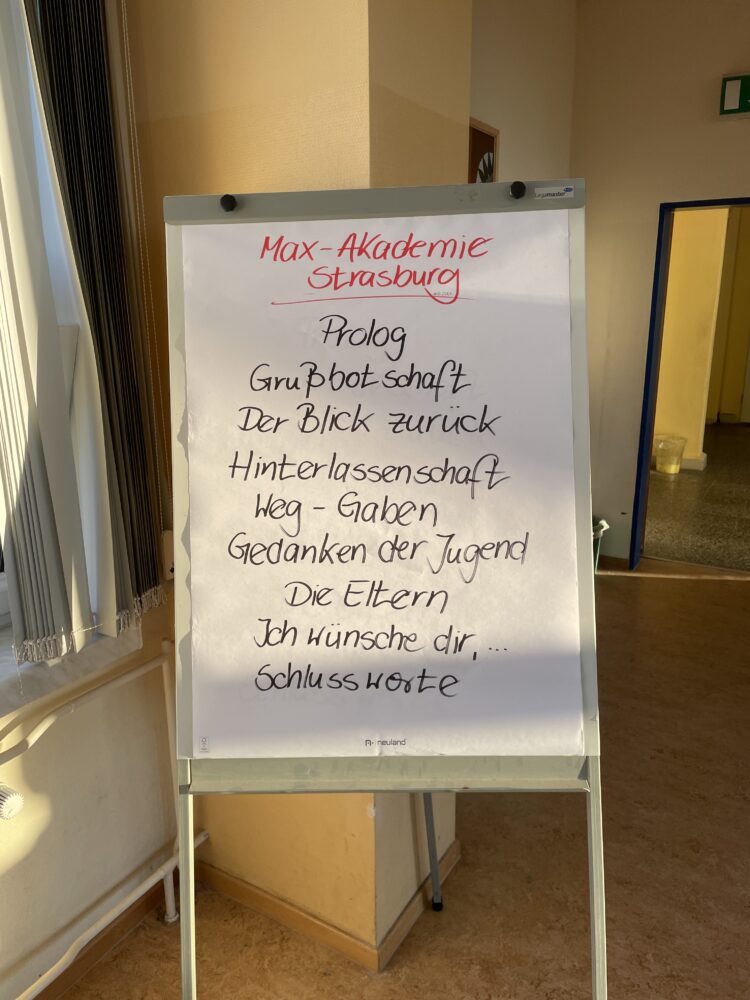 Max-Akademie
Strasburg
Prolog
Grußbotschaft
Der Blick zurück
Hinterlassenschaft
Weg - Gaben
Gedanken der Jugend
Die Eltern
Ich wünsche dir, ...
Schlussworte
neuland